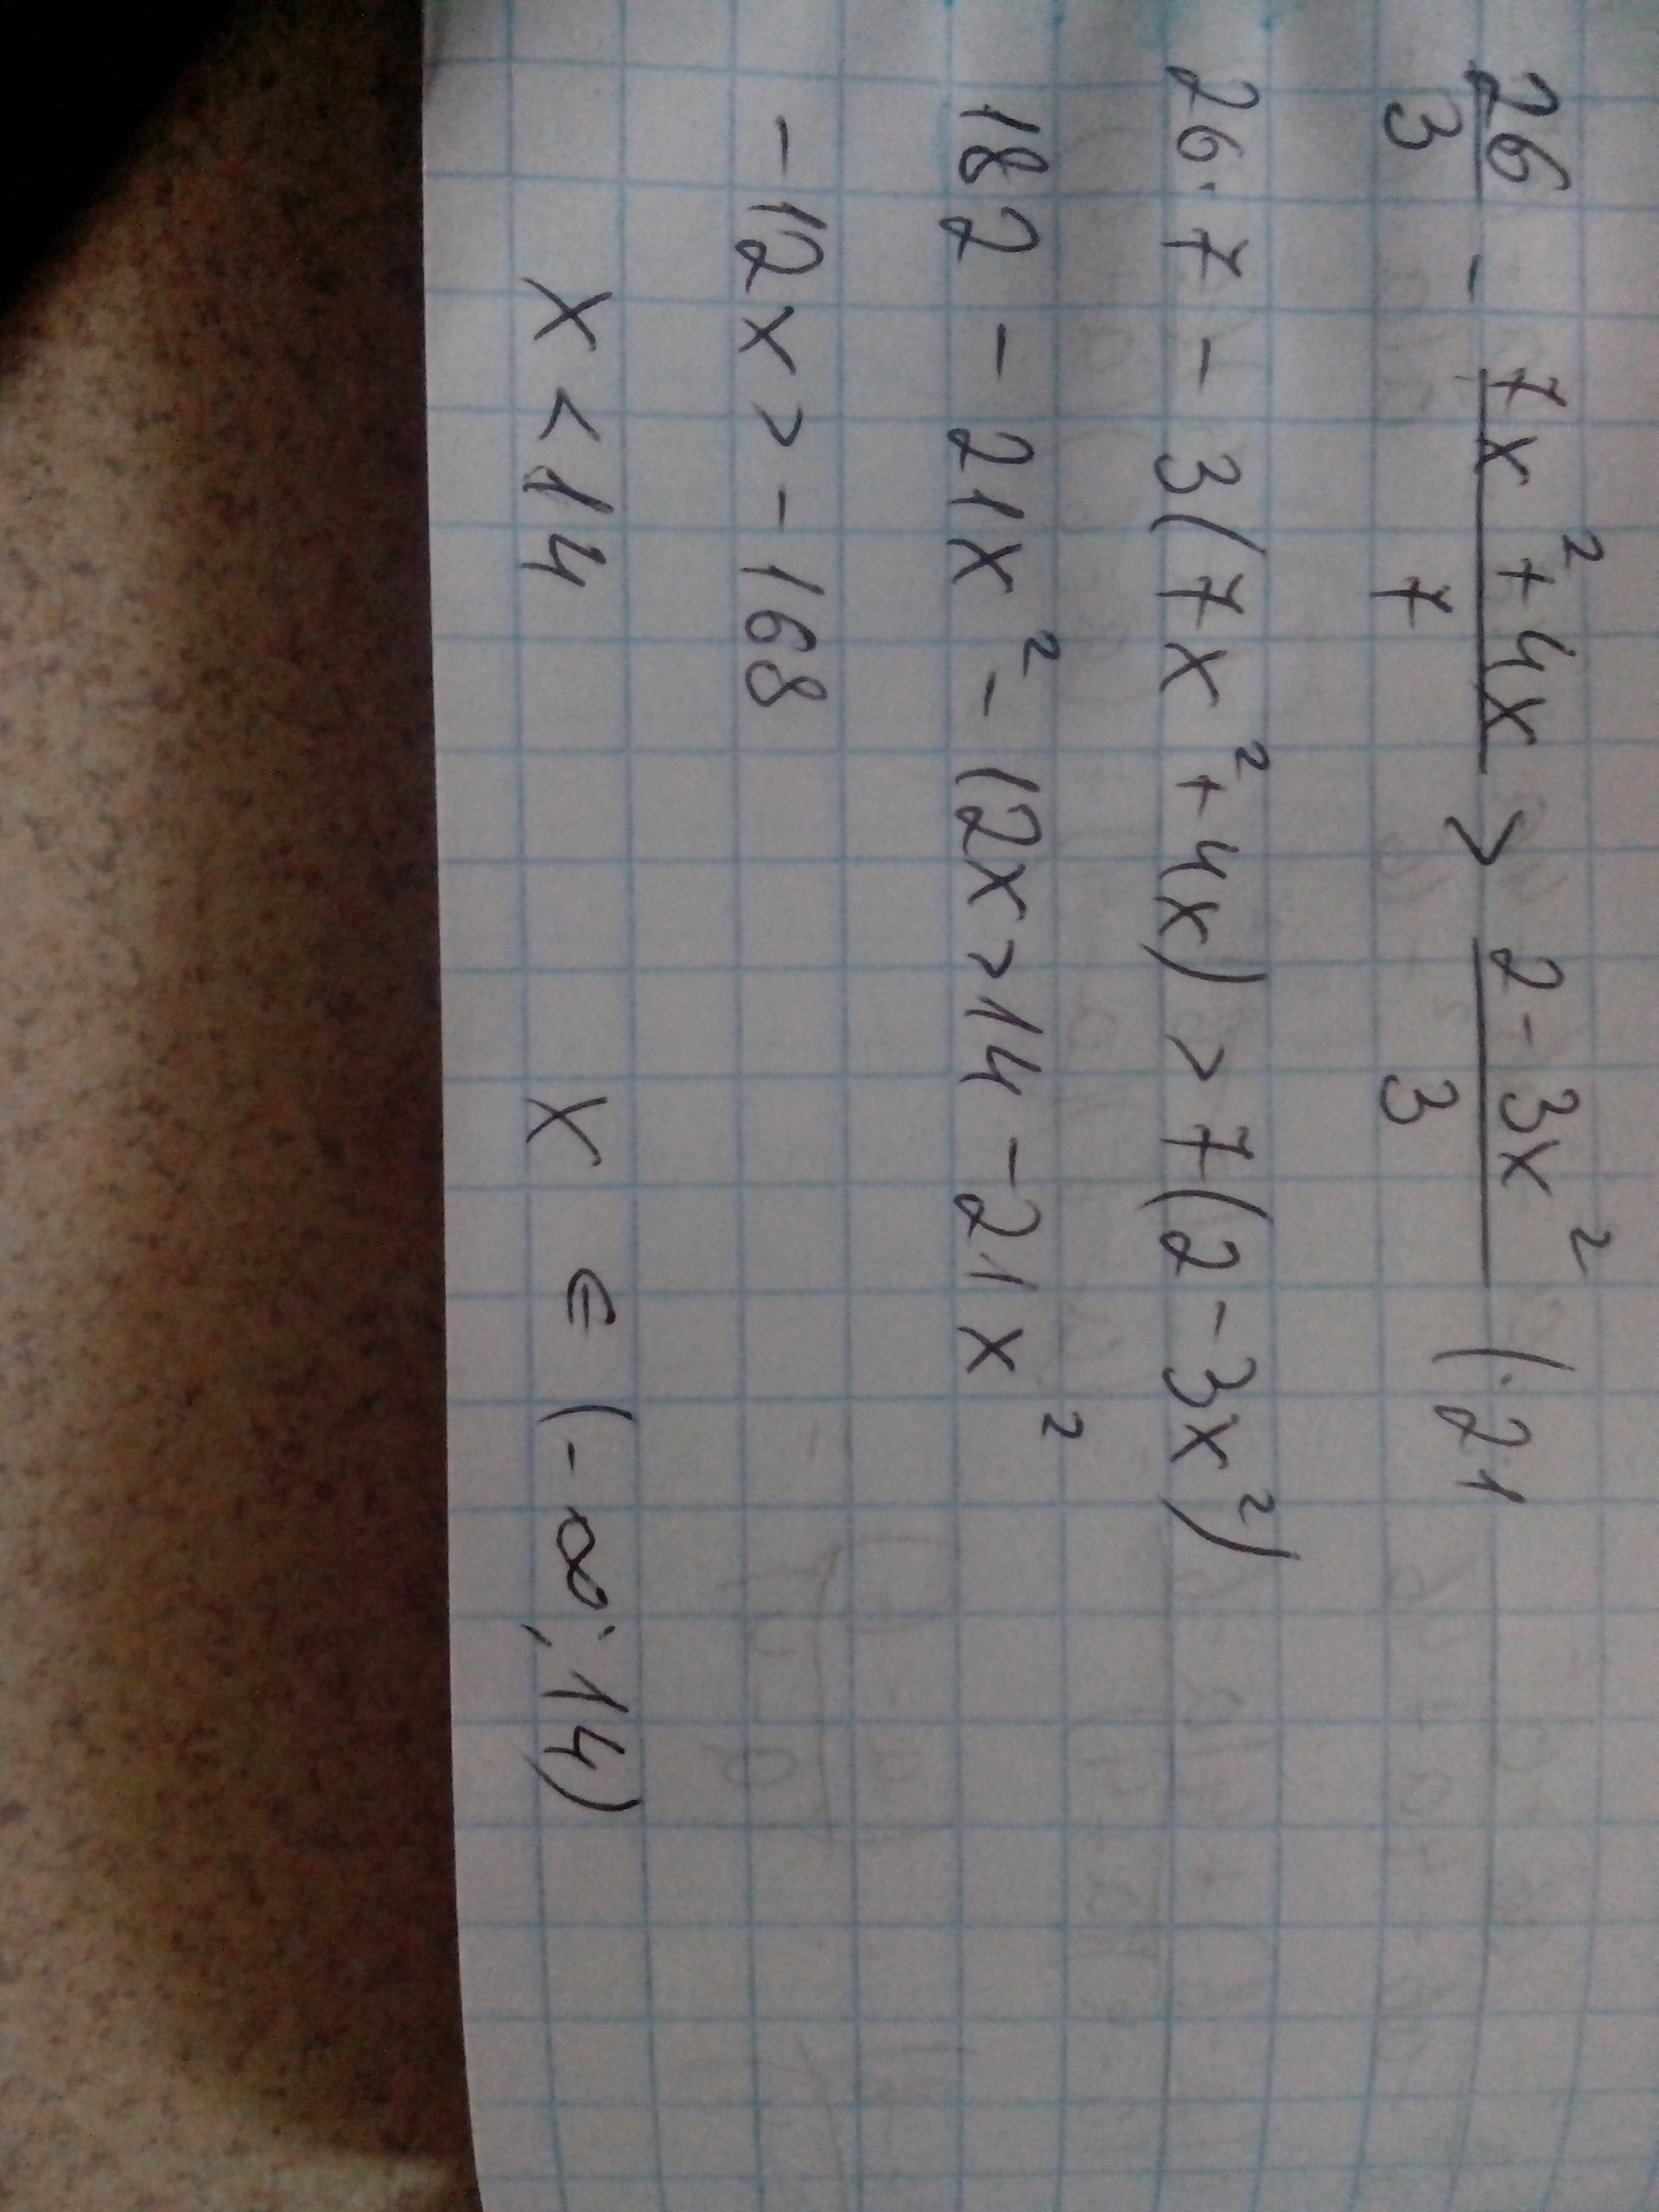 26/3 - (7x² + 4x)/7 > (2 - 3x²)/3 (·21
26·7 - 3(7x² + 4x) > 7(2 - 3x²)
182 - 21x² - 12x > 14 - 21x²
-12x > -168
x < 14 x ∈ (-∞; 14)